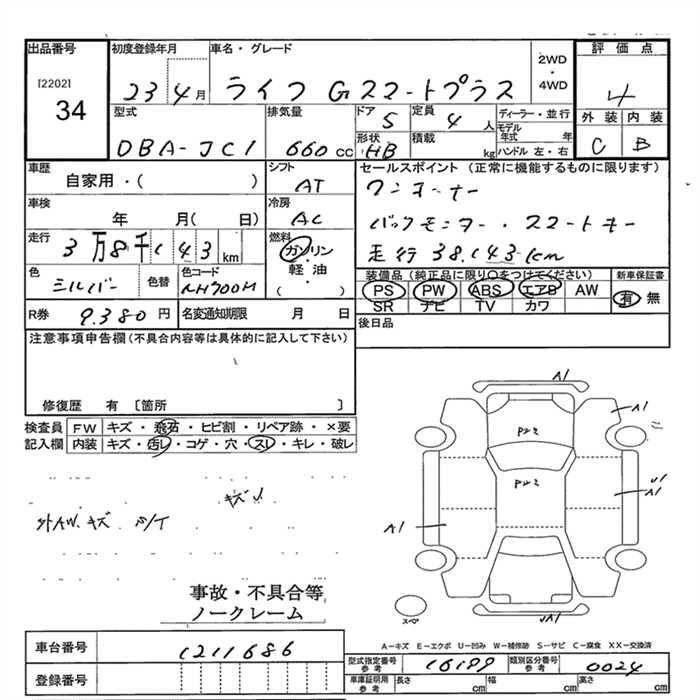 出品番号 初度登録年月 車名・グレード 2WD・4WD 評価点
[2202] 34 23 4月 ライフ Gスマートプラス 4
外装 内装
C B
型式 排気量 ドア 定員 ディーラー・並行
DBA-JC1 660cc 5 4人 モデル年式 年
形状 積載 ハンドル 左・右
HB kg
車歴 シフト セールスポイント (正常に機能するものに限ります)
自家用・( ) AT ワンオーナー
車検 冷房
年 月( 日) AC バックモニター・スマートキー
走行 燃料
3万8千143km ガソリン・軽油・( ) 走行38,143km
色 色替 色コード 装備品 (純正品に限り○をつけてください) 新車保証書
シルバー NH700M PS PW ABS エアB AW 有 無
SR ナビ TV カワ
R券 9,380円 名変通知期限 月 日 後日品
注意事項申告欄(不具合内容等は具体的に記入して下さい)
修復歴 有 〔箇所 〕
検査員記入欄 FW キズ・飛石・ヒビ割・リペア跡・×要
内装 キズ・汚レ・コゲ・穴・スレ・キレ・破レ
外AW.キズ
A1
A1
PZミ
PZミ
A1
A1
スペア
事故・不具合等
ノークレーム
A-キズ E-エクボ U-凹み W-補修跡 S-サビ C-腐食 XX-交換済
車台番号 1211686
型式指定番号 参考 16199 類別区分番号 参考 0024
登録番号
車庫証明用 参考 長さ cm 幅 cm 高さ cm